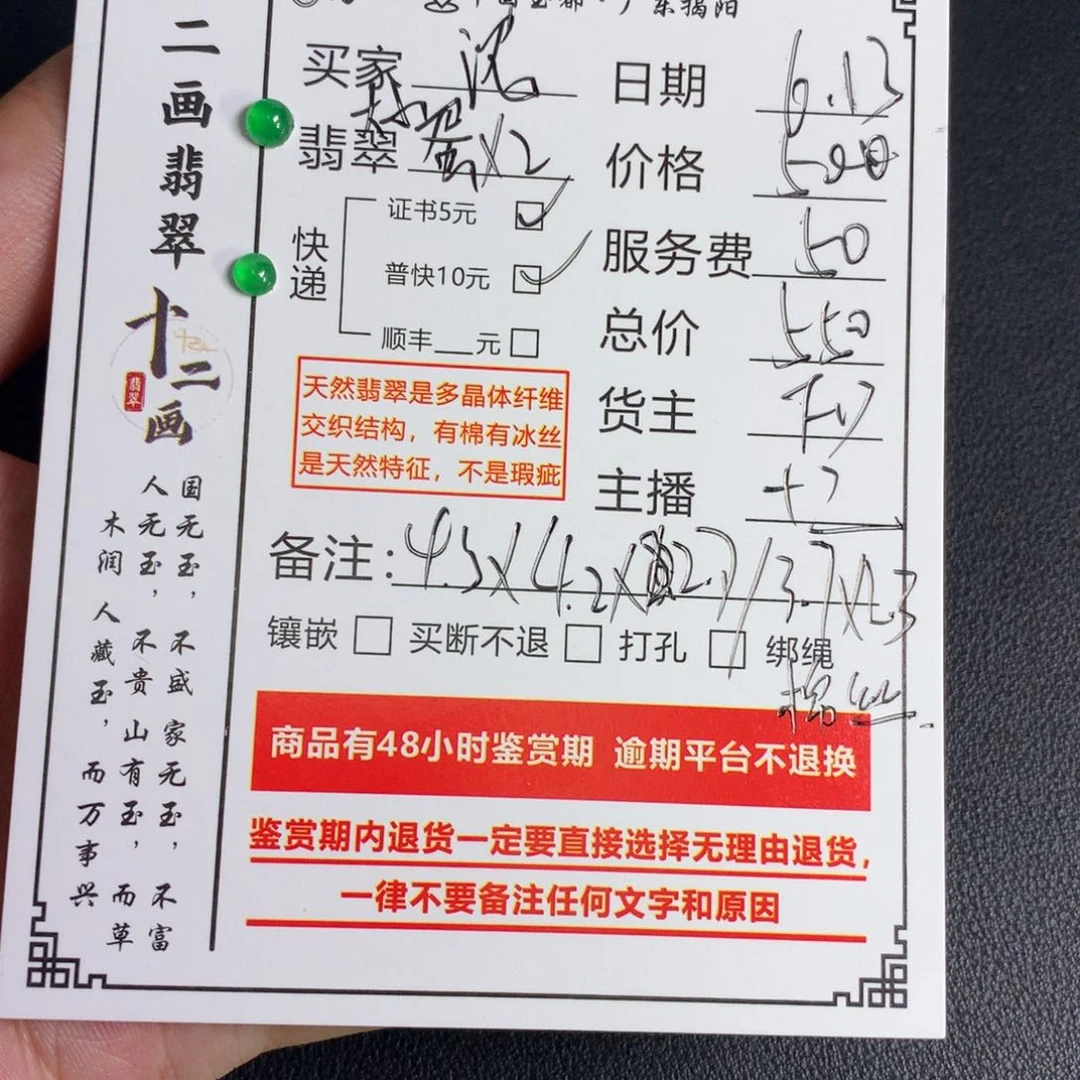 中国玉都·广东揭阳
二画翡翠
十二画
翡翠
国无玉，不盛家无玉，不富
人无玉，不贵山有玉，而草
木润人藏玉，而万事兴
买家 沈
日期 6.13
翡翠 蛋x2
价格 500
快递
证书5元
普快10元
顺丰__元
服务费 50
总价 550
货主
主播 十二
天然翡翠是多晶体纤维
交织结构，有棉有冰丝
是天然特征，不是瑕疵
备注：4.3x4.2x2.7/3.7x2.3
镶嵌 买断不退 打孔 绑绳
棉丝
商品有48小时鉴赏期 逾期平台不退换
鉴赏期内退货一定要直接选择无理由退货，
一律不要备注任何文字和原因